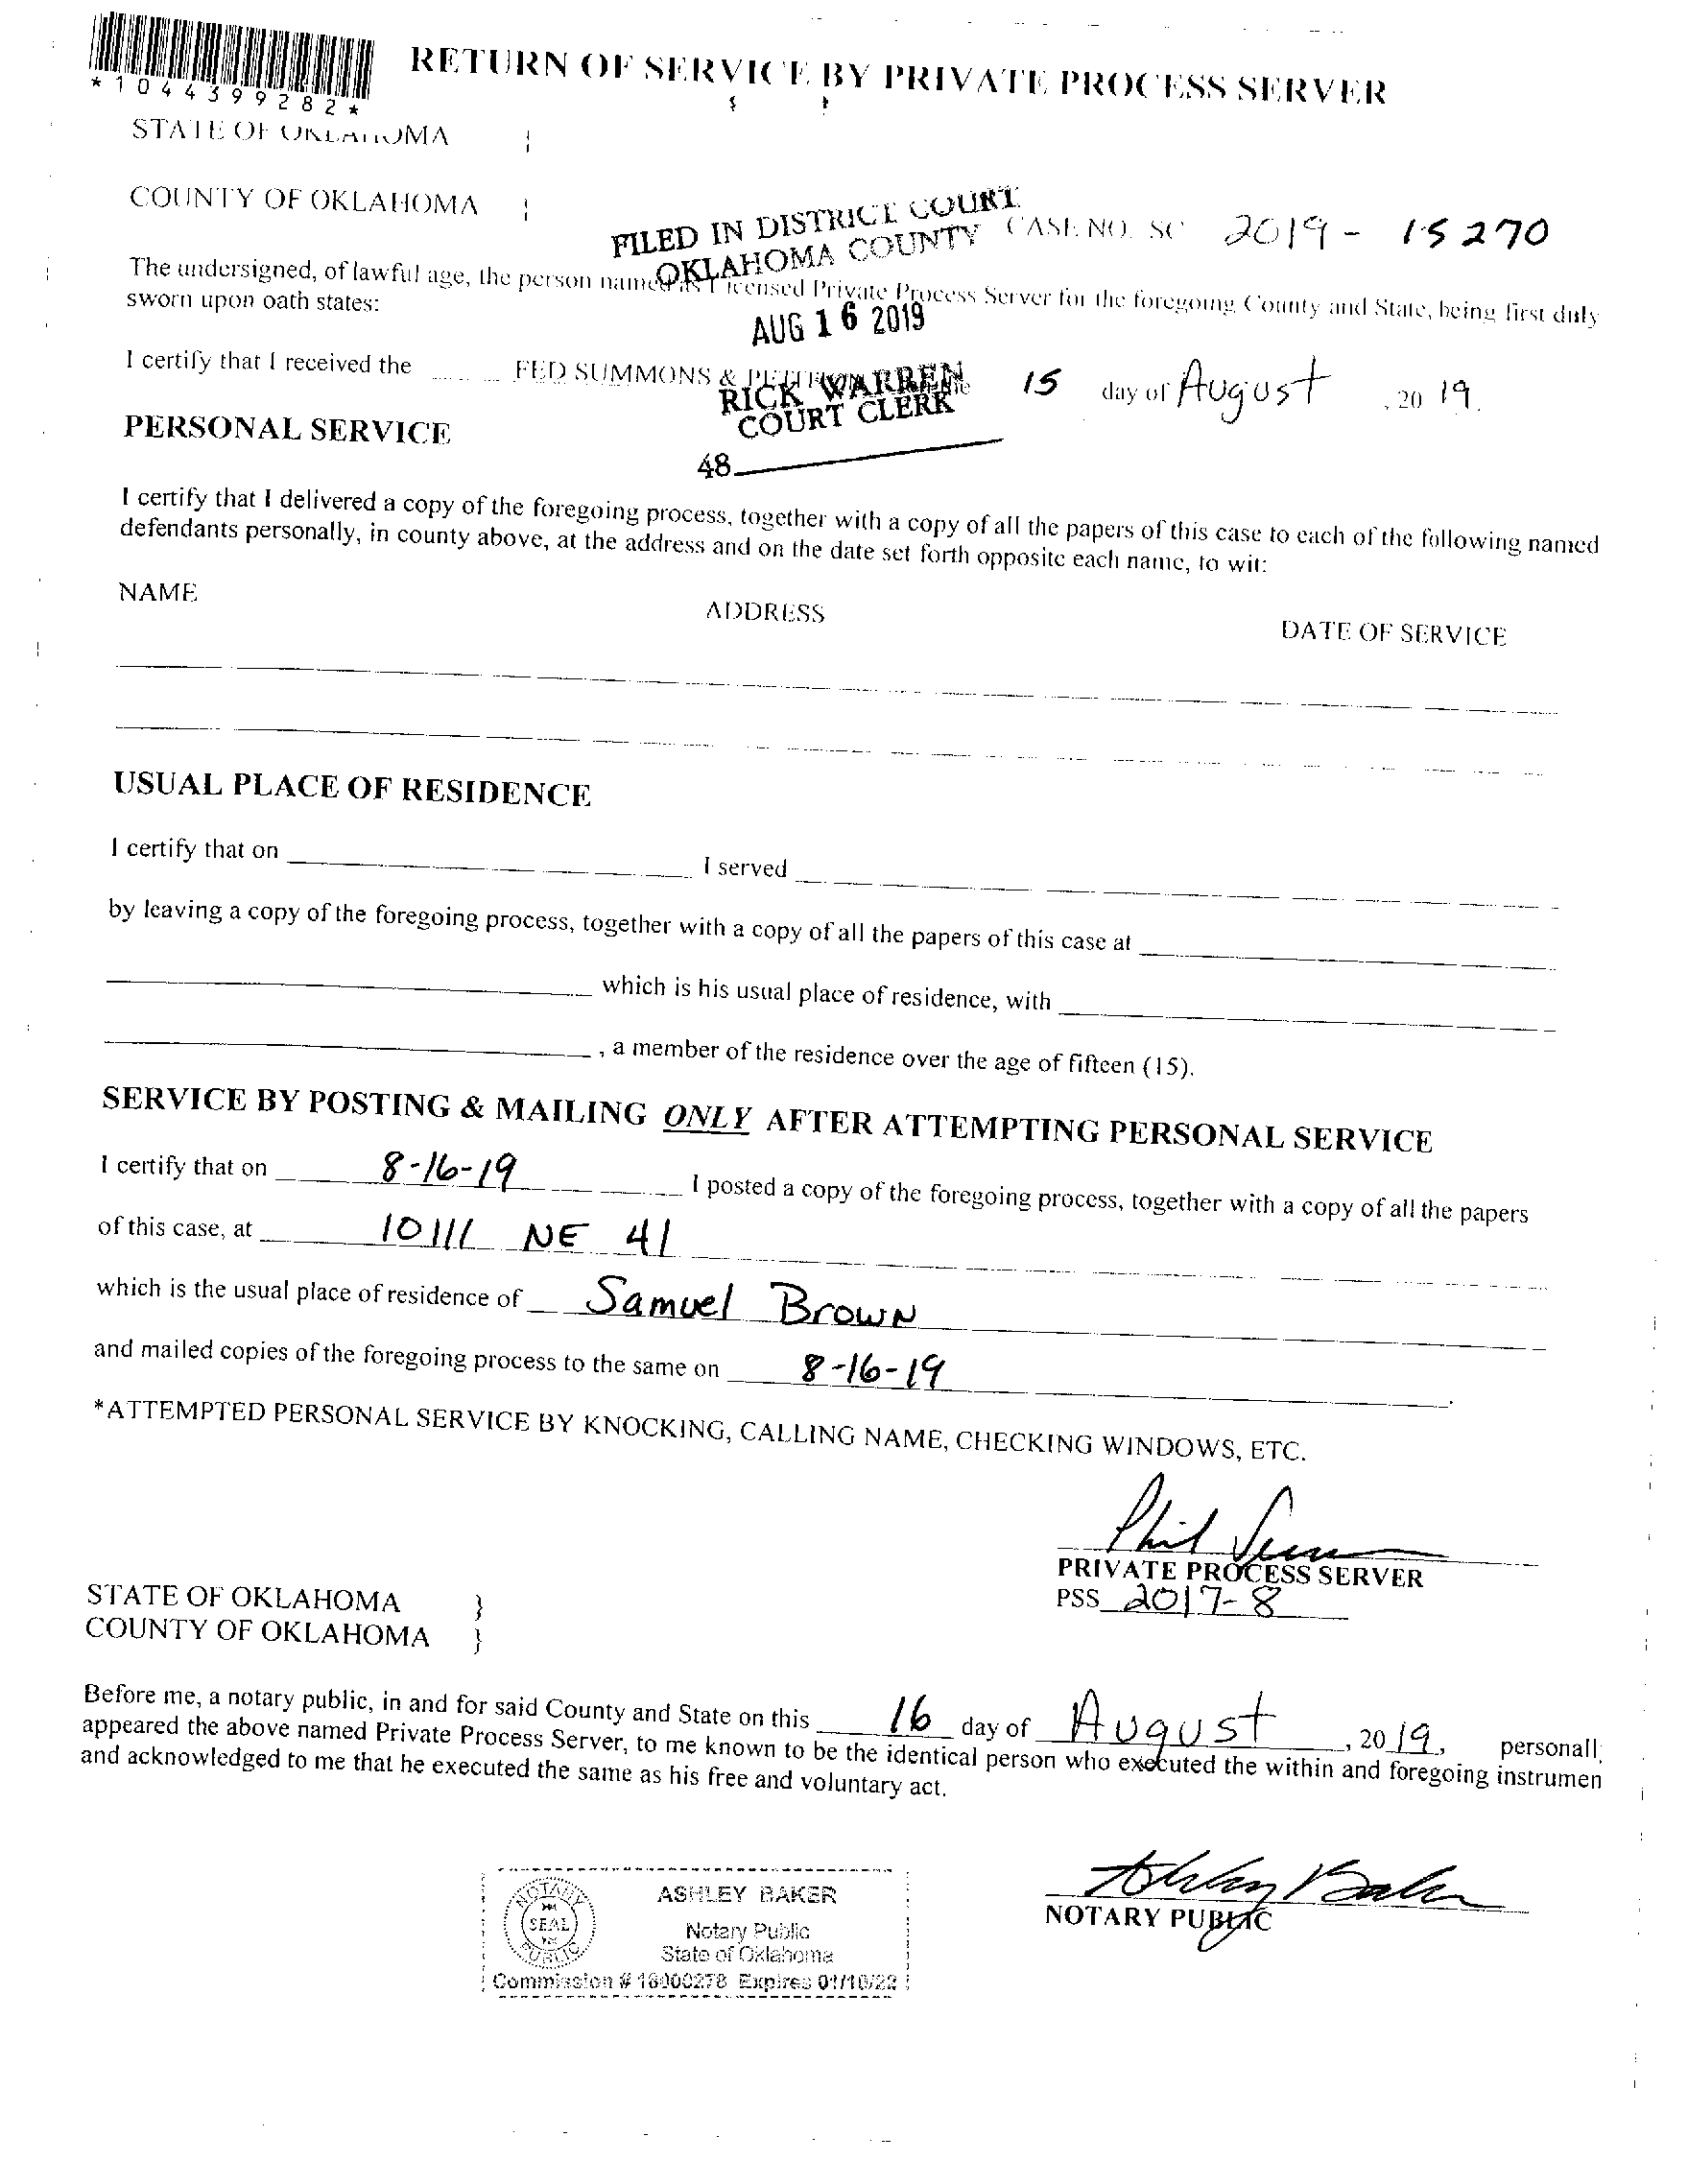 RETURN OF SERVICE BY PRIVATE PROCESS SERVER
*1044399282*
STATE OF OKLAHOMA
COUNTY OF OKLAHOMA
FILED IN DISTRICT COURT
OKLAHOMA COUNTY
CASE NO. SC 2019 - 15270
The undersigned, of lawful age, the person named as Licensed Private Process Server for the foregoing County and State, being first duly
sworn upon oath states:
AUG 16 2019
I certify that I received the FED SUMMONS & PETITION 15 day of August, 2019.
RICK WARREN
COURT CLERK
48
PERSONAL SERVICE
I certify that I delivered a copy of the foregoing process, together with a copy of all the papers of this case to each of the following named
defendants personally, in county above, at the address and on the date set forth opposite each name, to wit:
NAME ADDRESS DATE OF SERVICE
USUAL PLACE OF RESIDENCE
I certify that on I served
by leaving a copy of the foregoing process, together with a copy of all the papers of this case at
which is his usual place of residence, with
, a member of the residence over the age of fifteen (15).
SERVICE BY POSTING & MAILING ONLY AFTER ATTEMPTING PERSONAL SERVICE
I certify that on 8-16-19 I posted a copy of the foregoing process, together with a copy of all the papers
of this case, at 10111 NE 41
which is the usual place of residence of Samuel Brown
and mailed copies of the foregoing process to the same on 8-16-19.
*ATTEMPTED PERSONAL SERVICE BY KNOCKING, CALLING NAME, CHECKING WINDOWS, ETC.
Phil
PRIVATE PROCESS SERVER
PSS 2017-8
STATE OF OKLAHOMA }
COUNTY OF OKLAHOMA }
Before me, a notary public, in and for said County and State on this 16 day of August, 2019, personall
appeared the above named Private Process Server, to me known to be the identical person who executed the within and foregoing instrumen
and acknowledged to me that he executed the same as his free and voluntary act.
Ashley Baker
NOTARY PUBLIC
NOTARY SEAL PUBLIC
ASHLEY BAKER
Notary Public
State of Oklahoma
Commission # 18000278 Expires 01/10/22